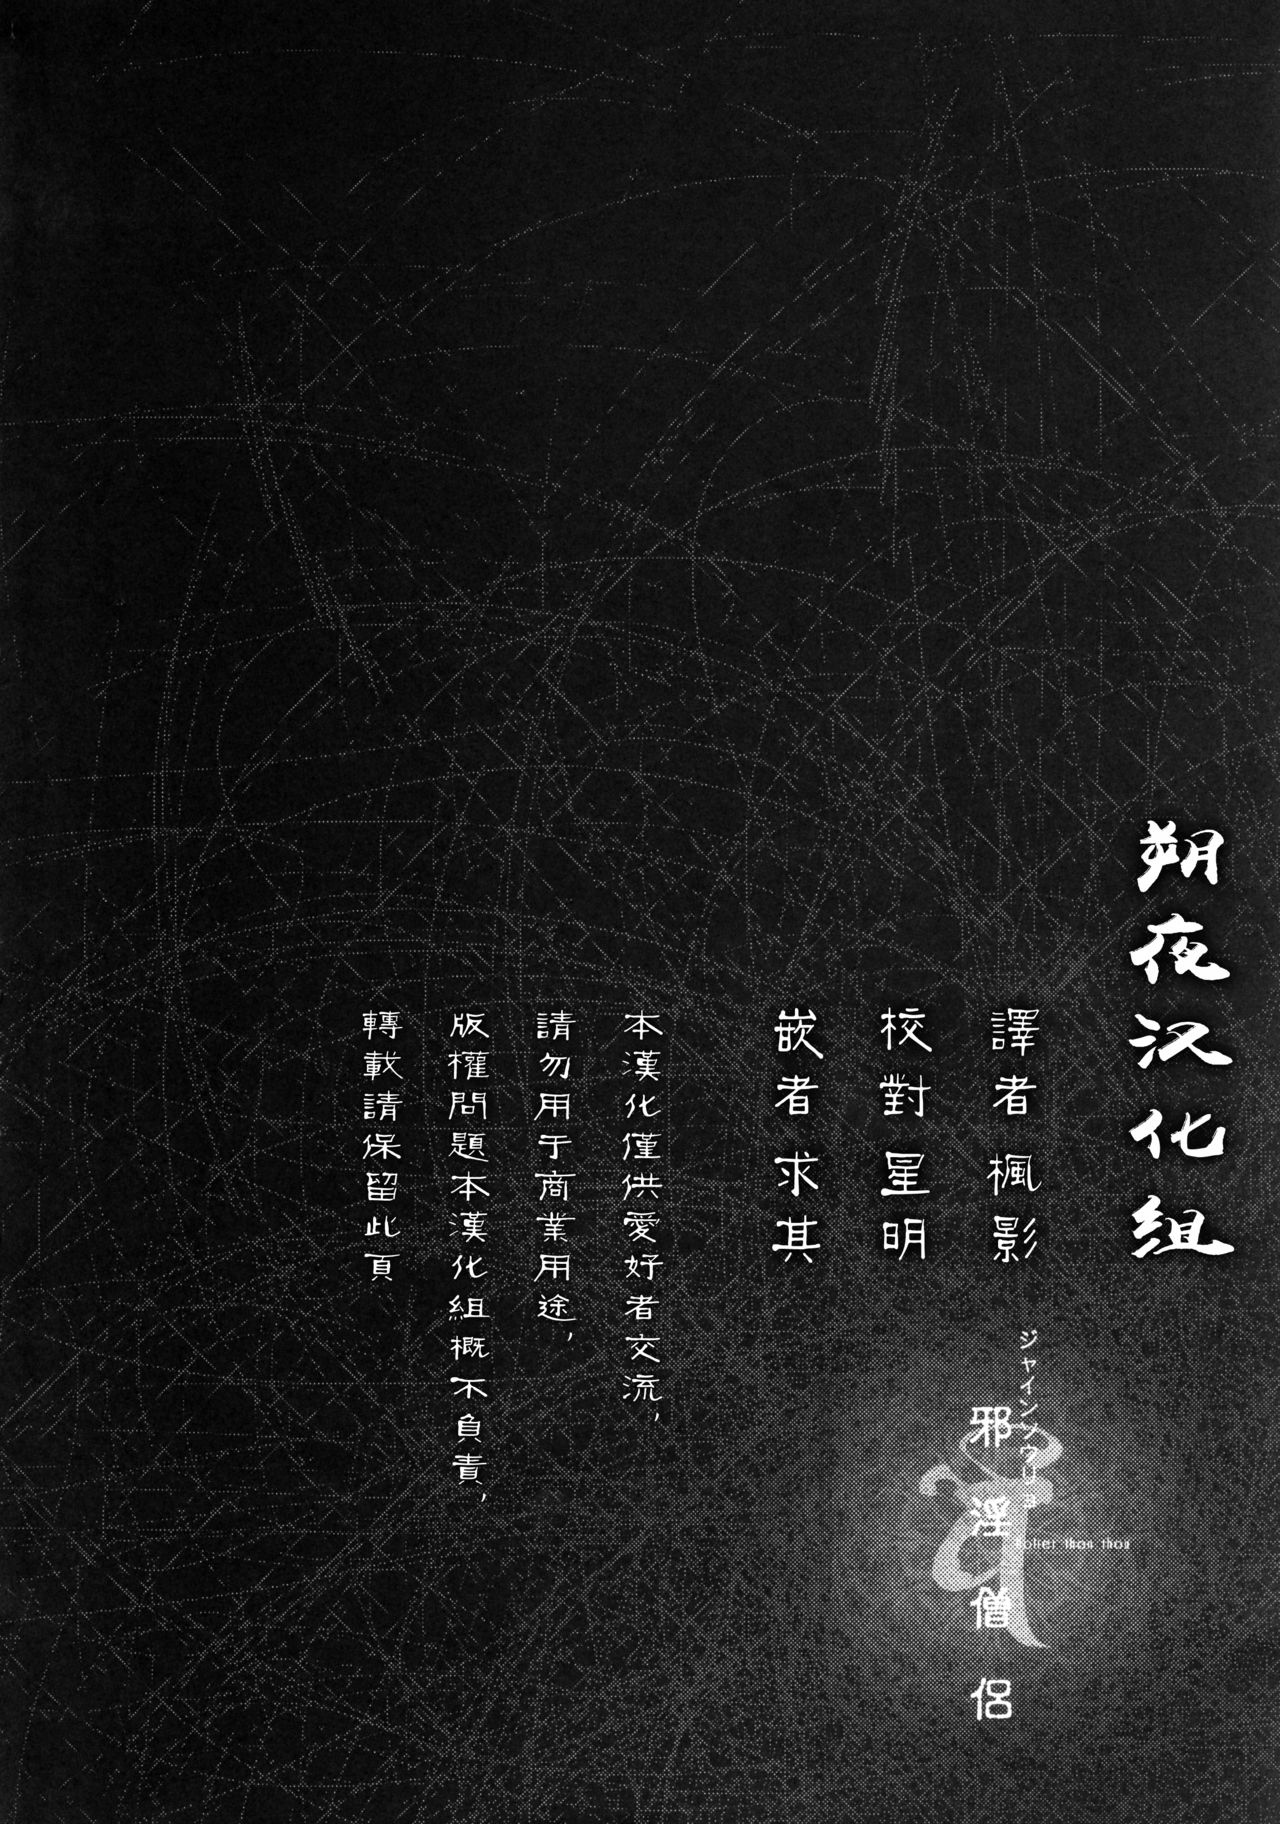 朔夜汉化组
譯者 楓影
校對 星明
嵌者 求其
本漢化僅供愛好者交流，
請勿用于商業用途，
版權問題本漢化組概不負責，
轉載請保留此頁
ジャインソウリョ
邪淫僧侶
Holier than thou